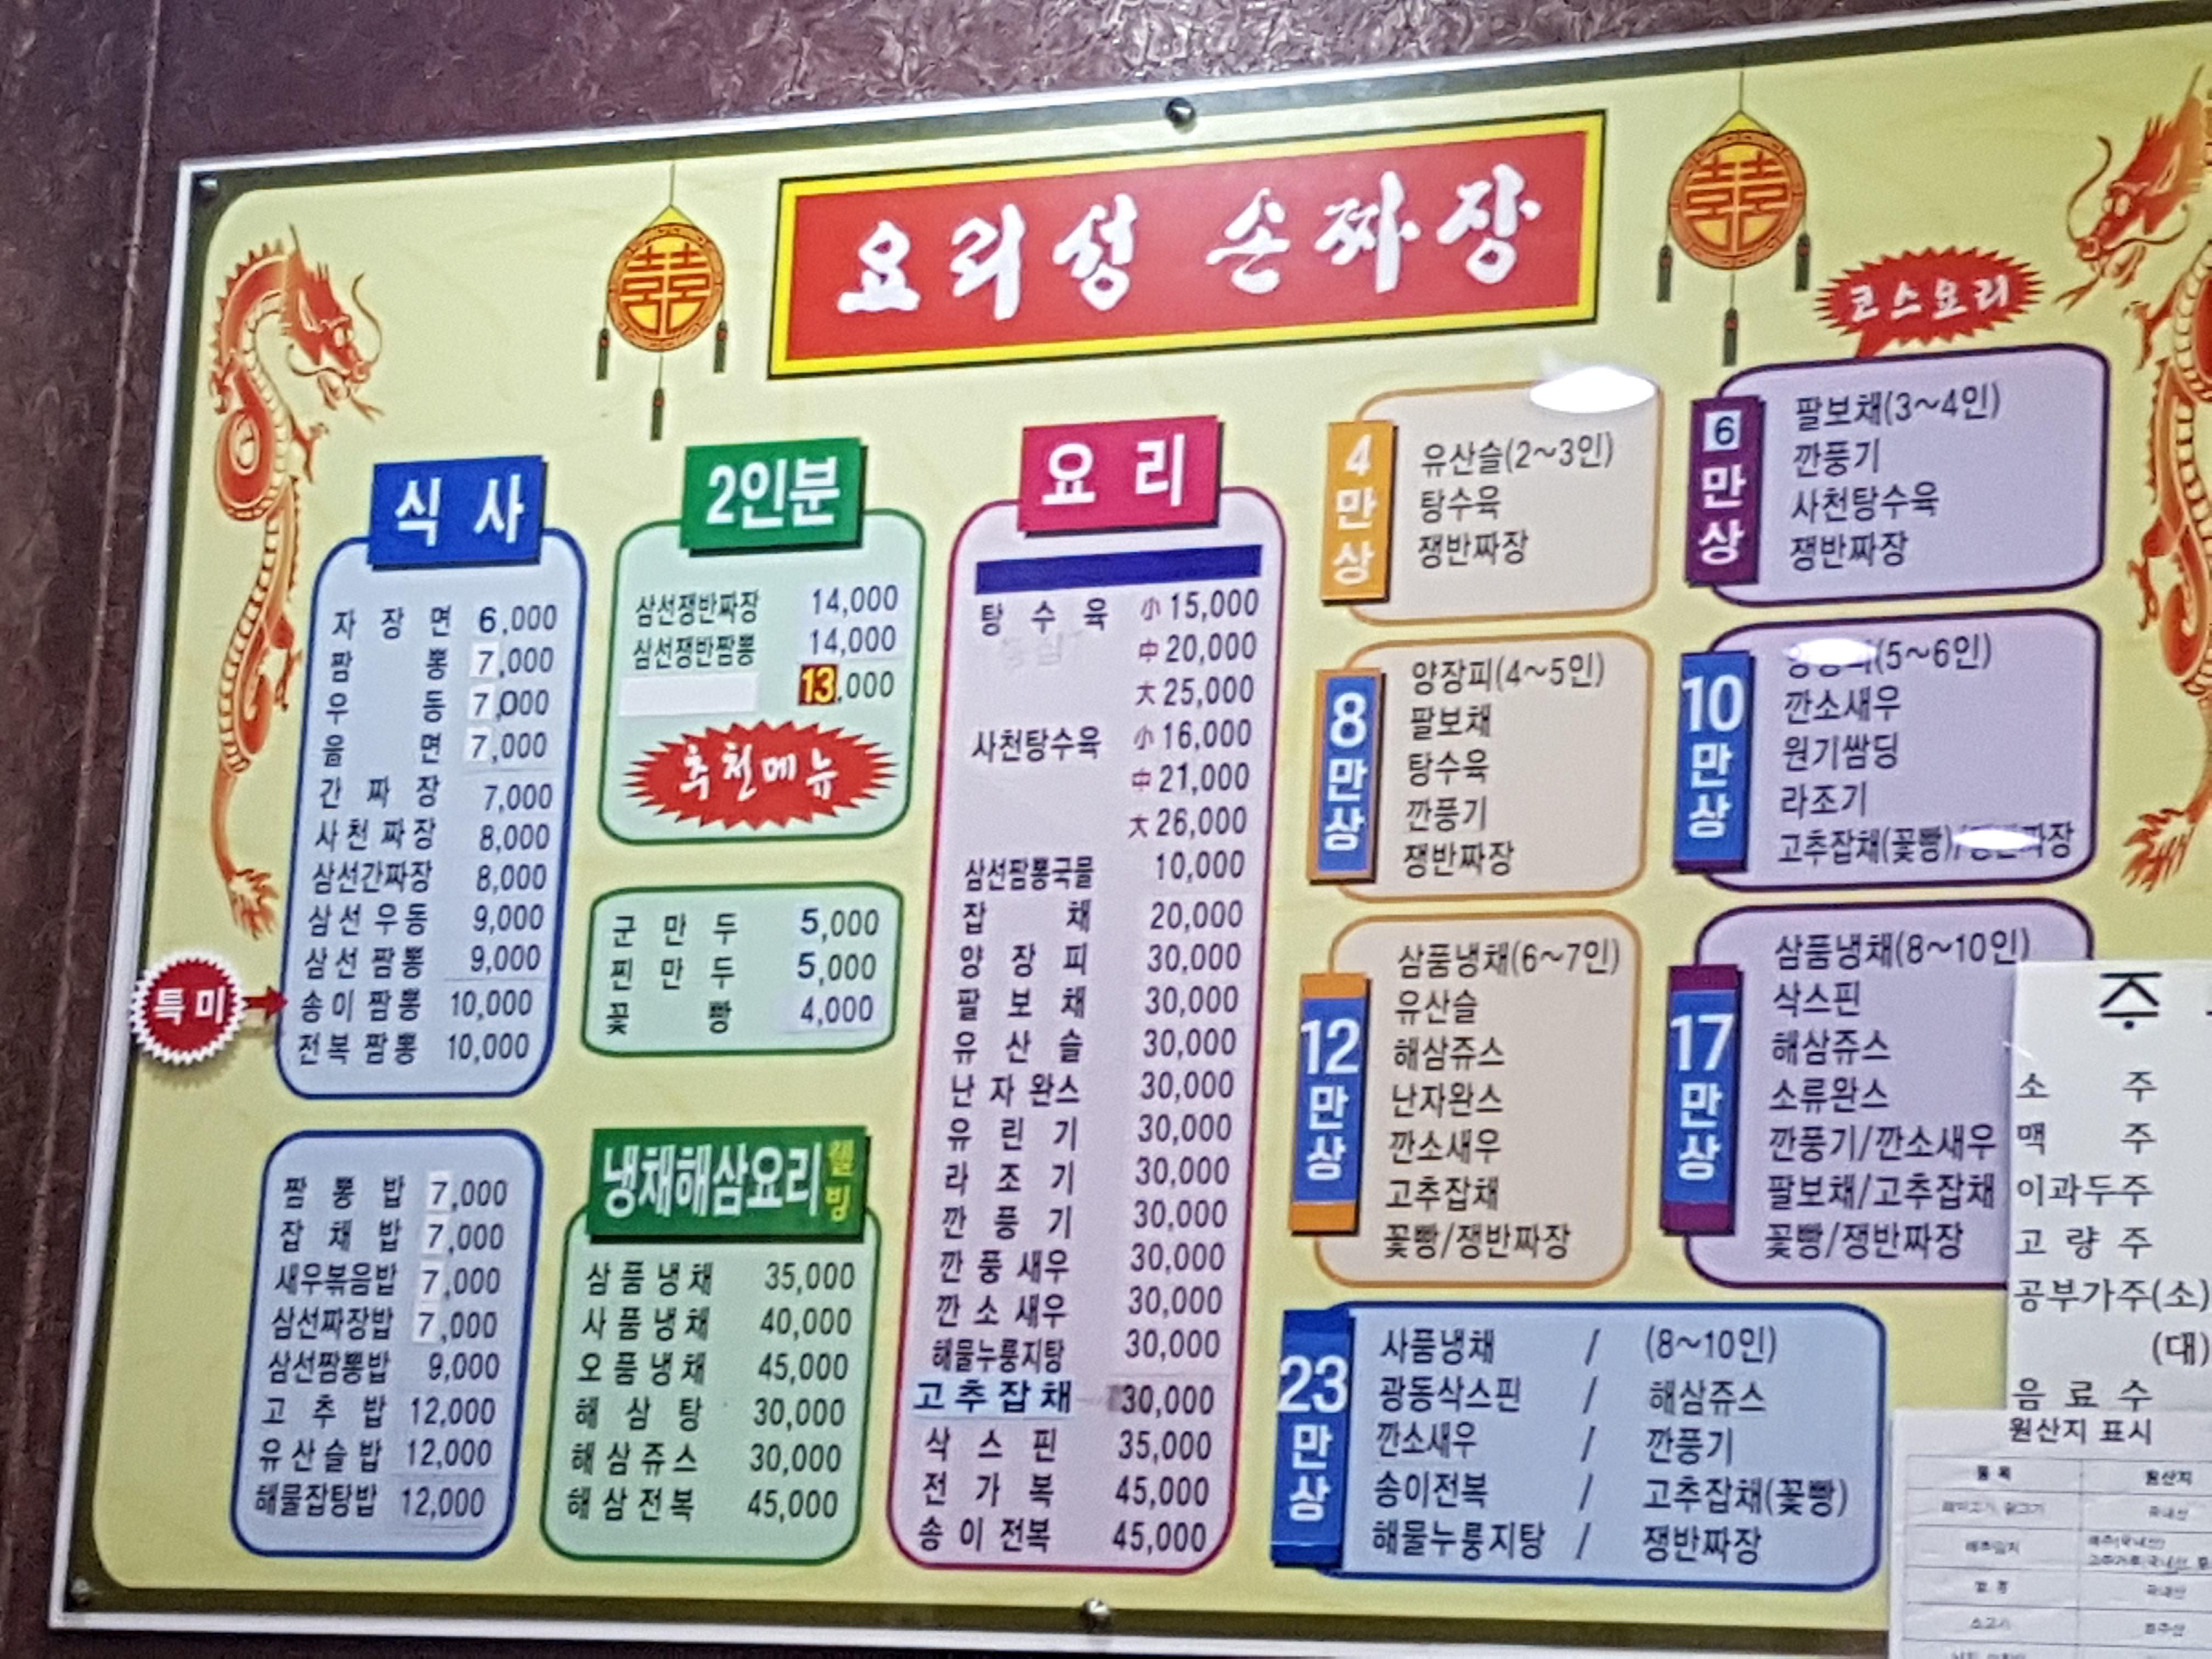 요리성 손짜장
식 사
자 장 면 6,000
짬 뽕 7,000
우 동 7,000
울 면 7,000
간 짜 장 7,000
사 천 짜 장 8,000
삼선간짜장 8,000
삼 선 우 동 9,000
삼 선 짬 뽕 9,000
특미
송 이 짬 뽕 10,000
전 복 짬 뽕 10,000
짬 뽕 밥 7,000
잡 채 밥 7,000
새우볶음밥 7,000
삼선짜장밥 7,000
삼선짬뽕밥 9,000
고 추 밥 12,000
유 산 슬 밥 12,000
해물잡탕밥 12,000
2인분
삼선쟁반짜장 14,000
삼선쟁반짬뽕 14,000
13,000
추천메뉴
군 만 두 5,000
찐 만 두 5,000
꽃 빵 4,000
냉채해삼요리 웰빙
삼 품 냉 채 35,000
사 품 냉 채 40,000
오 품 냉 채 45,000
해 삼 탕 30,000
해 삼 쥬 스 30,000
해 삼 전 복 45,000
요 리
탕 수 육 小 15,000
中 20,000
大 25,000
사천탕수육 小 16,000
中 21,000
大 26,000
삼선짬뽕국물 10,000
잡 채 20,000
양 장 피 30,000
팔 보 채 30,000
유 산 슬 30,000
난 자 완 스 30,000
유 린 기 30,000
라 조 기 30,000
깐 풍 기 30,000
깐 풍 새 우 30,000
깐 소 새 우 30,000
해물누룽지탕 30,000
고 추 잡 채 30,000
삭 스 핀 35,000
전 가 복 45,000
송 이 전 복 45,000
코스요리
4만상
유산슬(2~3인)
탕수육
쟁반짜장
6만상
팔보채(3~4인)
깐풍기
사천탕수육
쟁반짜장
8만상
양장피(4~5인)
팔보채
탕수육
깐풍기
쟁반짜장
10만상
(5~6인)
깐소새우
원기쌈딩
라조기
고추잡채(꽃빵)/쟁반짜장
12만상
삼품냉채(6~7인)
유산슬
해삼쥬스
난자완스
깐소새우
고추잡채
꽃빵/쟁반짜장
17만상
삼품냉채(8~10인)
삭스핀
해삼쥬스
소류완스
깐풍기/깐소새우
팔보채/고추잡채
꽃빵/쟁반짜장
23만상
사품냉채 / (8~10인)
광동삭스핀 / 해삼쥬스
깐소새우 / 깐풍기
송이전복 / 고추잡채(꽃빵)
해물누룽지탕 / 쟁반짜장
주
소 주
맥 주
이과두주
고 량 주
공부가주(소)
(대)
음 료 수
원산지 표시
품 목 원산지
국내산
배추김치
국내산
소고기 호주산